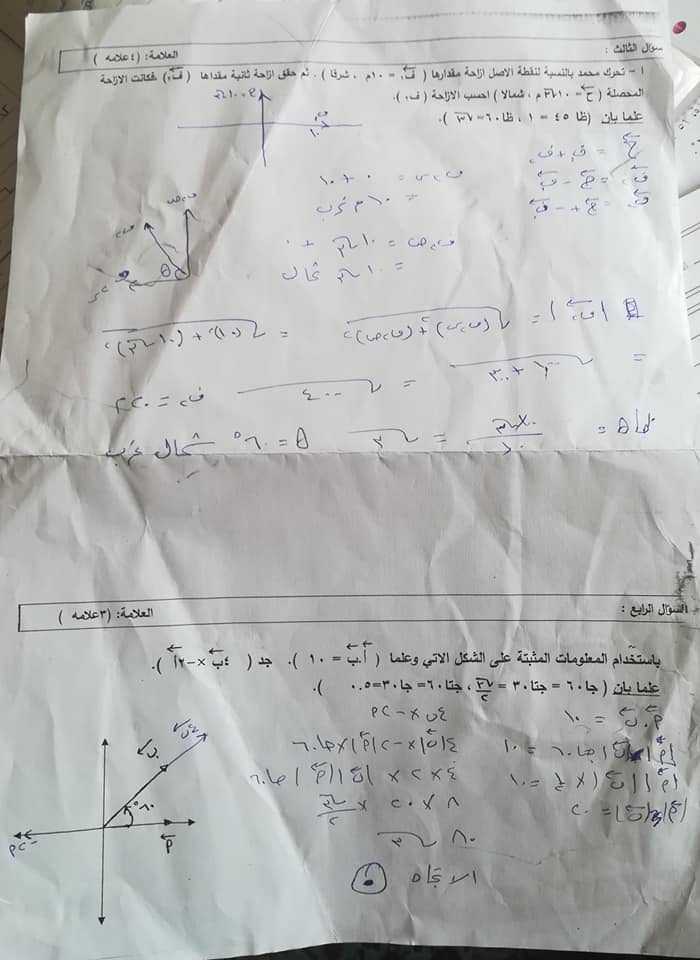 سؤال الثالث : العلامة: (٤علامه )
١ - تحرك محمد بالنسبة لنقطة الاصل ازاحة مقدارها ( ف١ = ١٠م ، شرقا ) . ثم حقق ازاحة ثانية مقداها ( ف٢) فكانت الازاحة
المحصلة ( ح = ١٠√٣ م ، شمالا ) احسب الازاحة ( ف٢ ).
علما بان (ظا ٤٥ = ١ ، ظا٦٠ = √٣ ).
ح = ف١ + ف٢
ف٢ = ح - ف١
ف٢ = ح + - ف١
ف٢س = ٠ + ١٠
= ١٠ م غرب
ف٢ص = ١٠√٣ + ٠
= ١٠√٣ شمال
θ
|ف٢| = √(ف٢س)٢ + (ف٢ص)٢ = √(١٠)٢ + (١٠√٣)٢
= √١٠٠ + ٣٠٠ = √٤٠٠ ف٢ = ٢٠م
ظاθ = ١٠√٣/١٠ = √٣ θ = ٦٠° شمال غرب
السؤال الرابع : العلامة: (٣علامه )
باستخدام المعلومات المثبتة على الشكل الاتي وعلما ( أ.ب = ١٠ ). جد ( ٤ب × -٢أ ).
علما بان ( جا٦٠ = جتا٣٠ = √٣/٢ ، جتا٦٠ = جا٣٠ = ٠.٥ ).
أ . ب = ١٠
|أ| |ب| جتا٦٠ = ١٠
|أ| |ب| × ½ = ١٠
|أ| |ب| = ٢٠
٤ب × -٢أ
٤|ب| × -٢|أ| × جا٦٠
٤ × ٢ × |ب| |أ| جا٦٠
٨ × ٢٠ × √٣/٢
٨٠ √٣
الاتجاه
٤ب
ب
٦٠°
أ
-٢أ